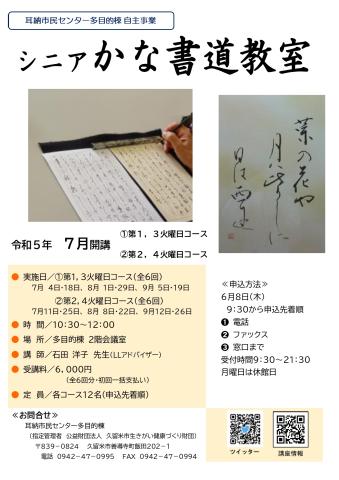 耳納市民センター多目的棟 自主事業
シニアかな書道教室
菜の花や
月は東に
日は西に
令和5年 7月開講
①第1,3火曜日コース
②第2,4火曜日コース
● 実施日/①第1,3火曜日コース(全6回)
7月 4日・18日、8月 1日・29日、9月 5日・19日
②第2,4火曜日コース(全6回)
7月11日・25日、8月 8日・22日、9月12日・26日
● 時 間/10:30~12:00
● 場 所/多目的棟 2階会議室
● 講 師/石田 洋子 先生(LLアドバイザー)
● 受講料/6,000円
(全6回分・初回一括支払い)
● 定 員/各コース12名(申込先着順)
≪申込方法≫
6月8日(木)
9:30から申込先着順
❶ 電話
❷ ファックス
❸ 窓口まで
受付時間9:30~21:30
月曜日は休館日
≪お問合せ≫
耳納市民センター多目的棟
(指定管理者 公益財団法人 久留米市生きがい健康づくり財団)
〒839-0824 久留米市善導寺町飯田202-1
電話 0942-47-0995 FAX 0942-47-0994
ツイッター
講座情報